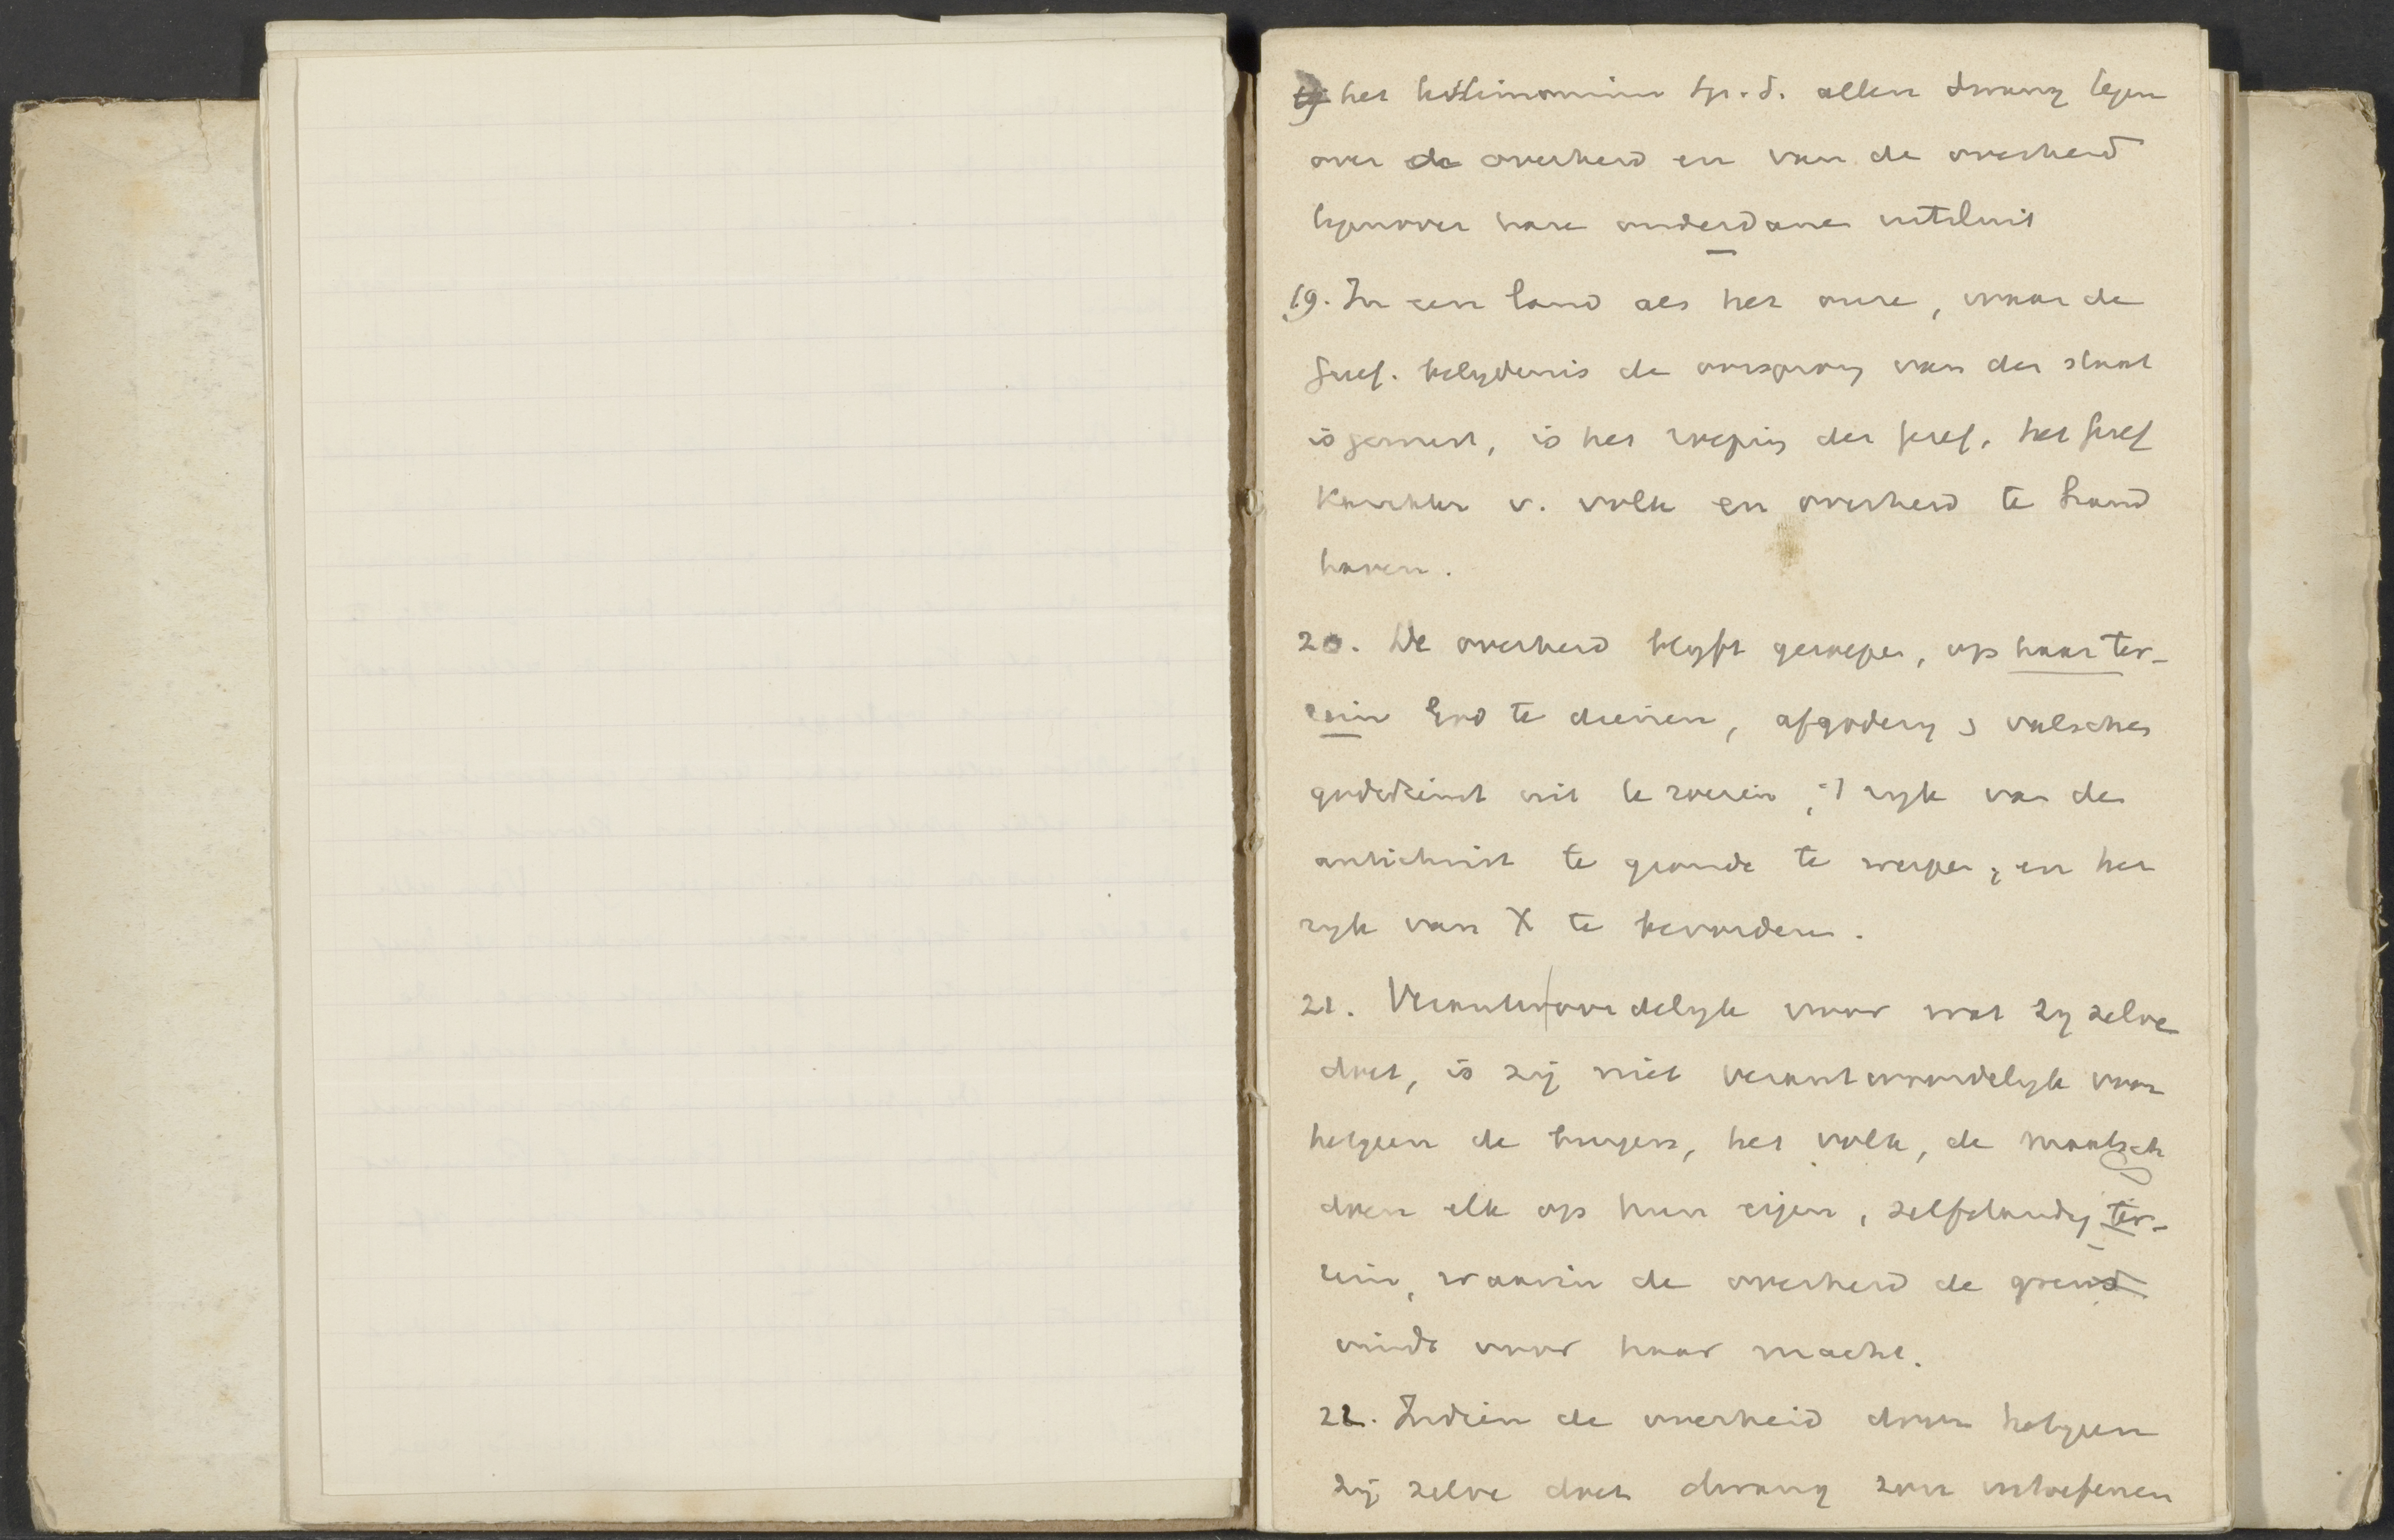 het testimonium Sp. S. allen dwang tegen
over de overheid en van de overheid
tegenover hare onderdanen uitsluit
19. In een land als het onze, waar de
Geref. belydenis de oorsprong van den staat
is geweest, is het roeping der Geref. het Geref
Karakter v. volk en overheid te hand
haven.
20. De overheid blyft geroepen, op haar ter-
rein God te dienen, afgodery & valschen
godsdienst uit te roeien, 't ryk van den
antichrist te gronde te werpen, en het
ryk van X te bevorderen.
21. Verantwoordelyk voor wat zy zelve
doet, is zij niet verantwoordelyk voor
hetgeen de burgers, het volk, de maatsch
doen elk op hun eigen, zelfstandig ter-
rein, waarin de overheid de grens
vindt voor haar macht.
22. Indien de overheid door hetgeen
zij zelve doet dwang zou uitoefenen